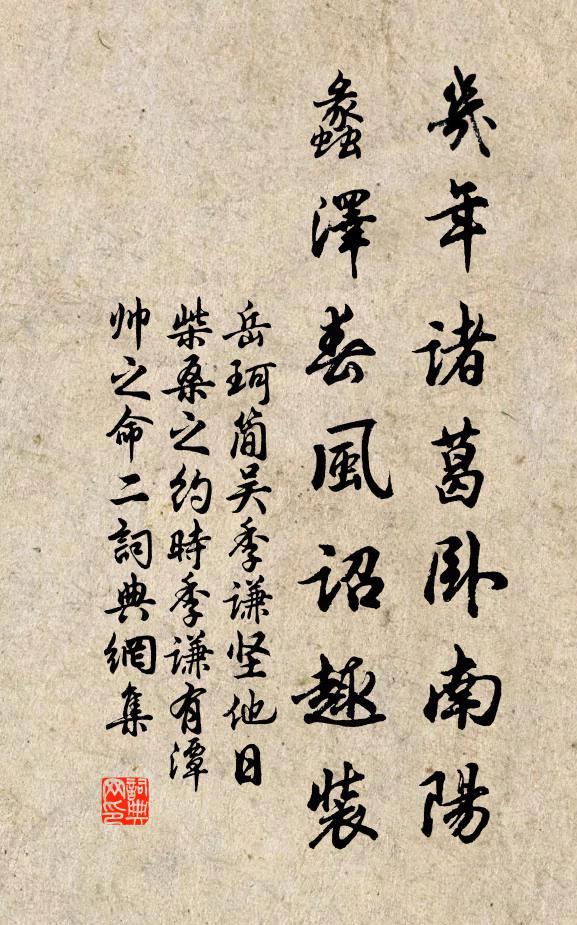 幾年諸葛卧南陽
蠡澤春風詔趣裝
岳珂簡吴季谦坚他日
柴桑之約時季谦有潭
帅之命二詞典網集
詞典网印